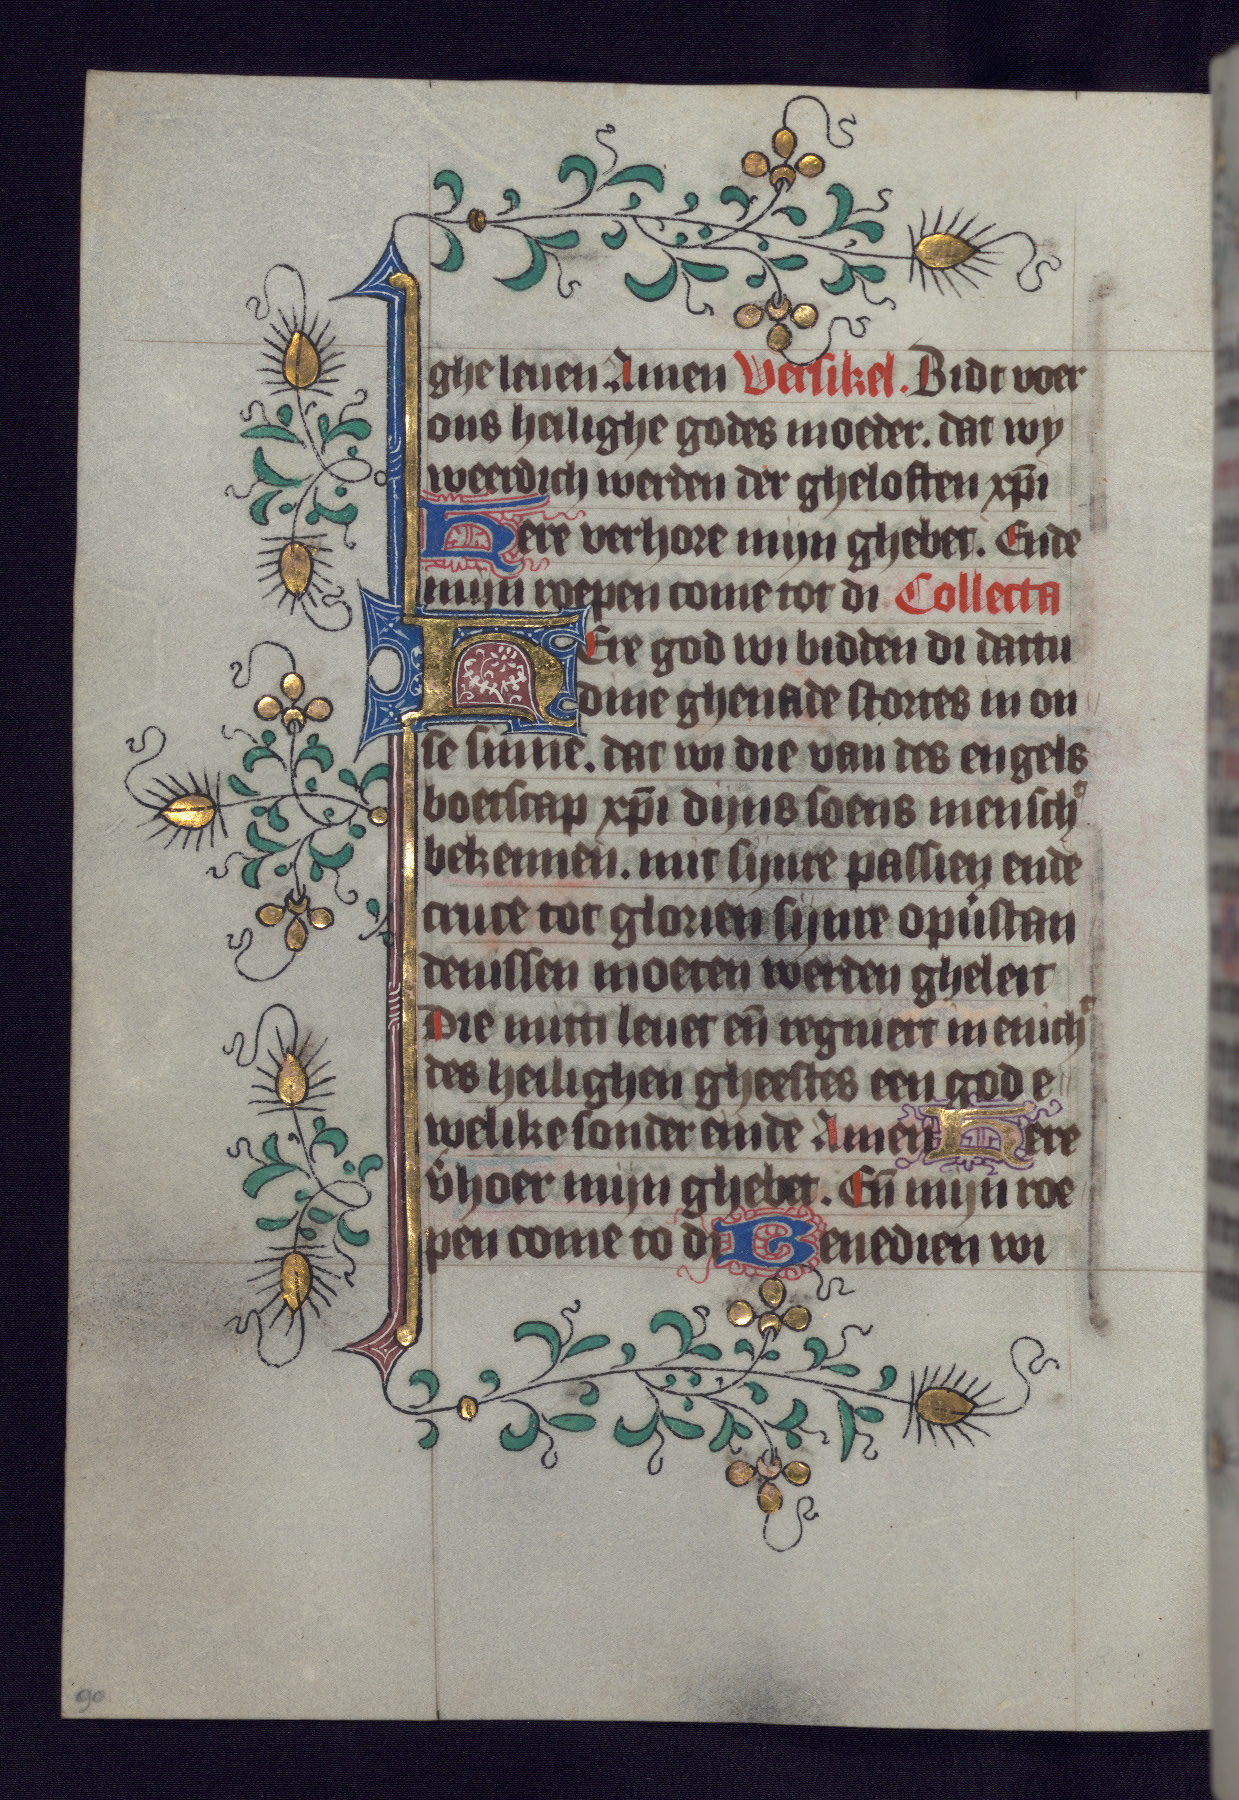 ghe leuen. Amen Versikel. Bidt voer
ons heilighe godes moeder. dat wy
weerdich werden der gheloften xp̄i
Here verhore mijn ghebet. Ende
mijn roepen come tot di Collecta
HEre god wi bidden di dattu
dine ghenade stortes in on
se sinne. dat wi die van des engels
boetscap xp̄i dijns soens mensch͛
bekennen. mit sijnre passien ende
cruce tot glorien sijnre op̅u̅stan
denissen moeten werden gheleit
Die mitti leuet en̄ regniert in enich͛
des heilighen gheestes een god e
welike sonder einde Amen Here
v̄hoer mijn ghebet. En̄ mijn roe
pen come to di Benedien wi
90